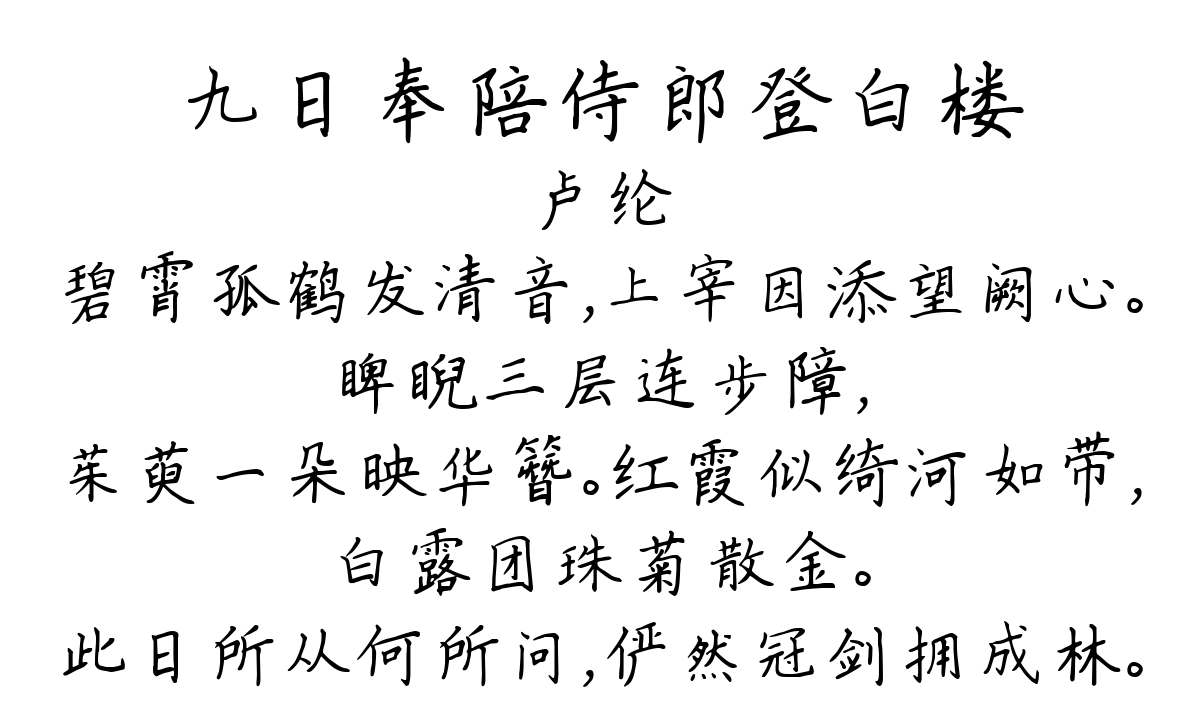 九日奉陪侍郎登白楼
卢纶
碧霄孤鹤发清音,上宰因添望阙心。
睥睨三层连步障,
茱萸一朵映华簪。红霞似绮河如带,
白露团珠菊散金。
此日所从何所问,俨然冠剑拥成林。